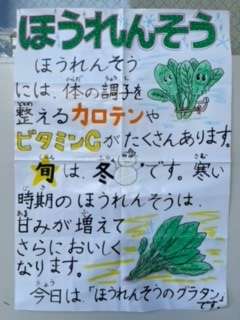 ほうれんそう
ほうれんそう
には、体の調子を
整えるカロテンや
ビタミンCがたくさんあります。
旬は、冬です。寒い
時期のほうれんそうは、
甘みが増えて
さらにおいしく
なります。
今日は、「ほうれんそうのグラタン」
です。